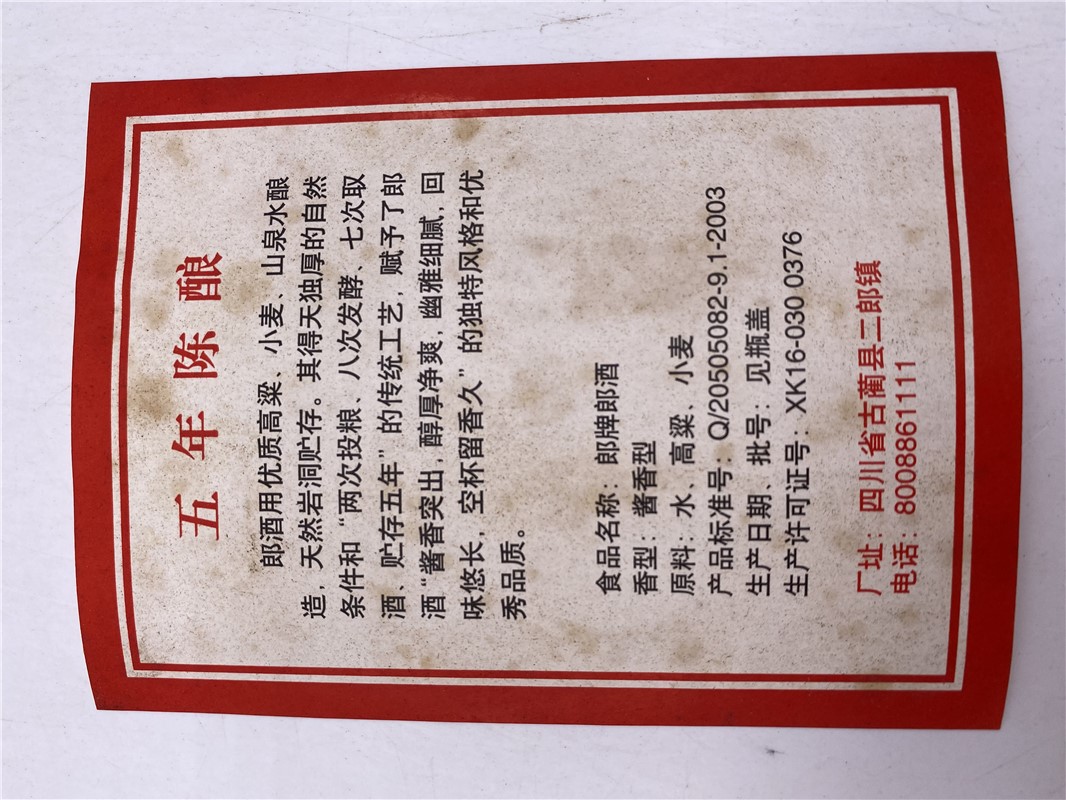 五年陈酿
郎酒用优质高粱、小麦、山泉水酿
造，天然岩洞贮存。其得天独厚的自然
条件和“两次投粮、八次发酵、七次取
酒、贮存五年”的传统工艺，赋予了郎
酒“酱香突出，醇厚净爽，幽雅细腻，回
味悠长，空杯留香久”的独特风格和优
秀品质。
食品名称：郎牌郎酒
香型：酱香型
原料：水、高粱、小麦
产品标准号：Q/20505082-9.1-2003
生产日期、批号：见瓶盖
生产许可证号：XK16-030 0376
厂址：四川省古蔺县二郎镇
电话：8008861111